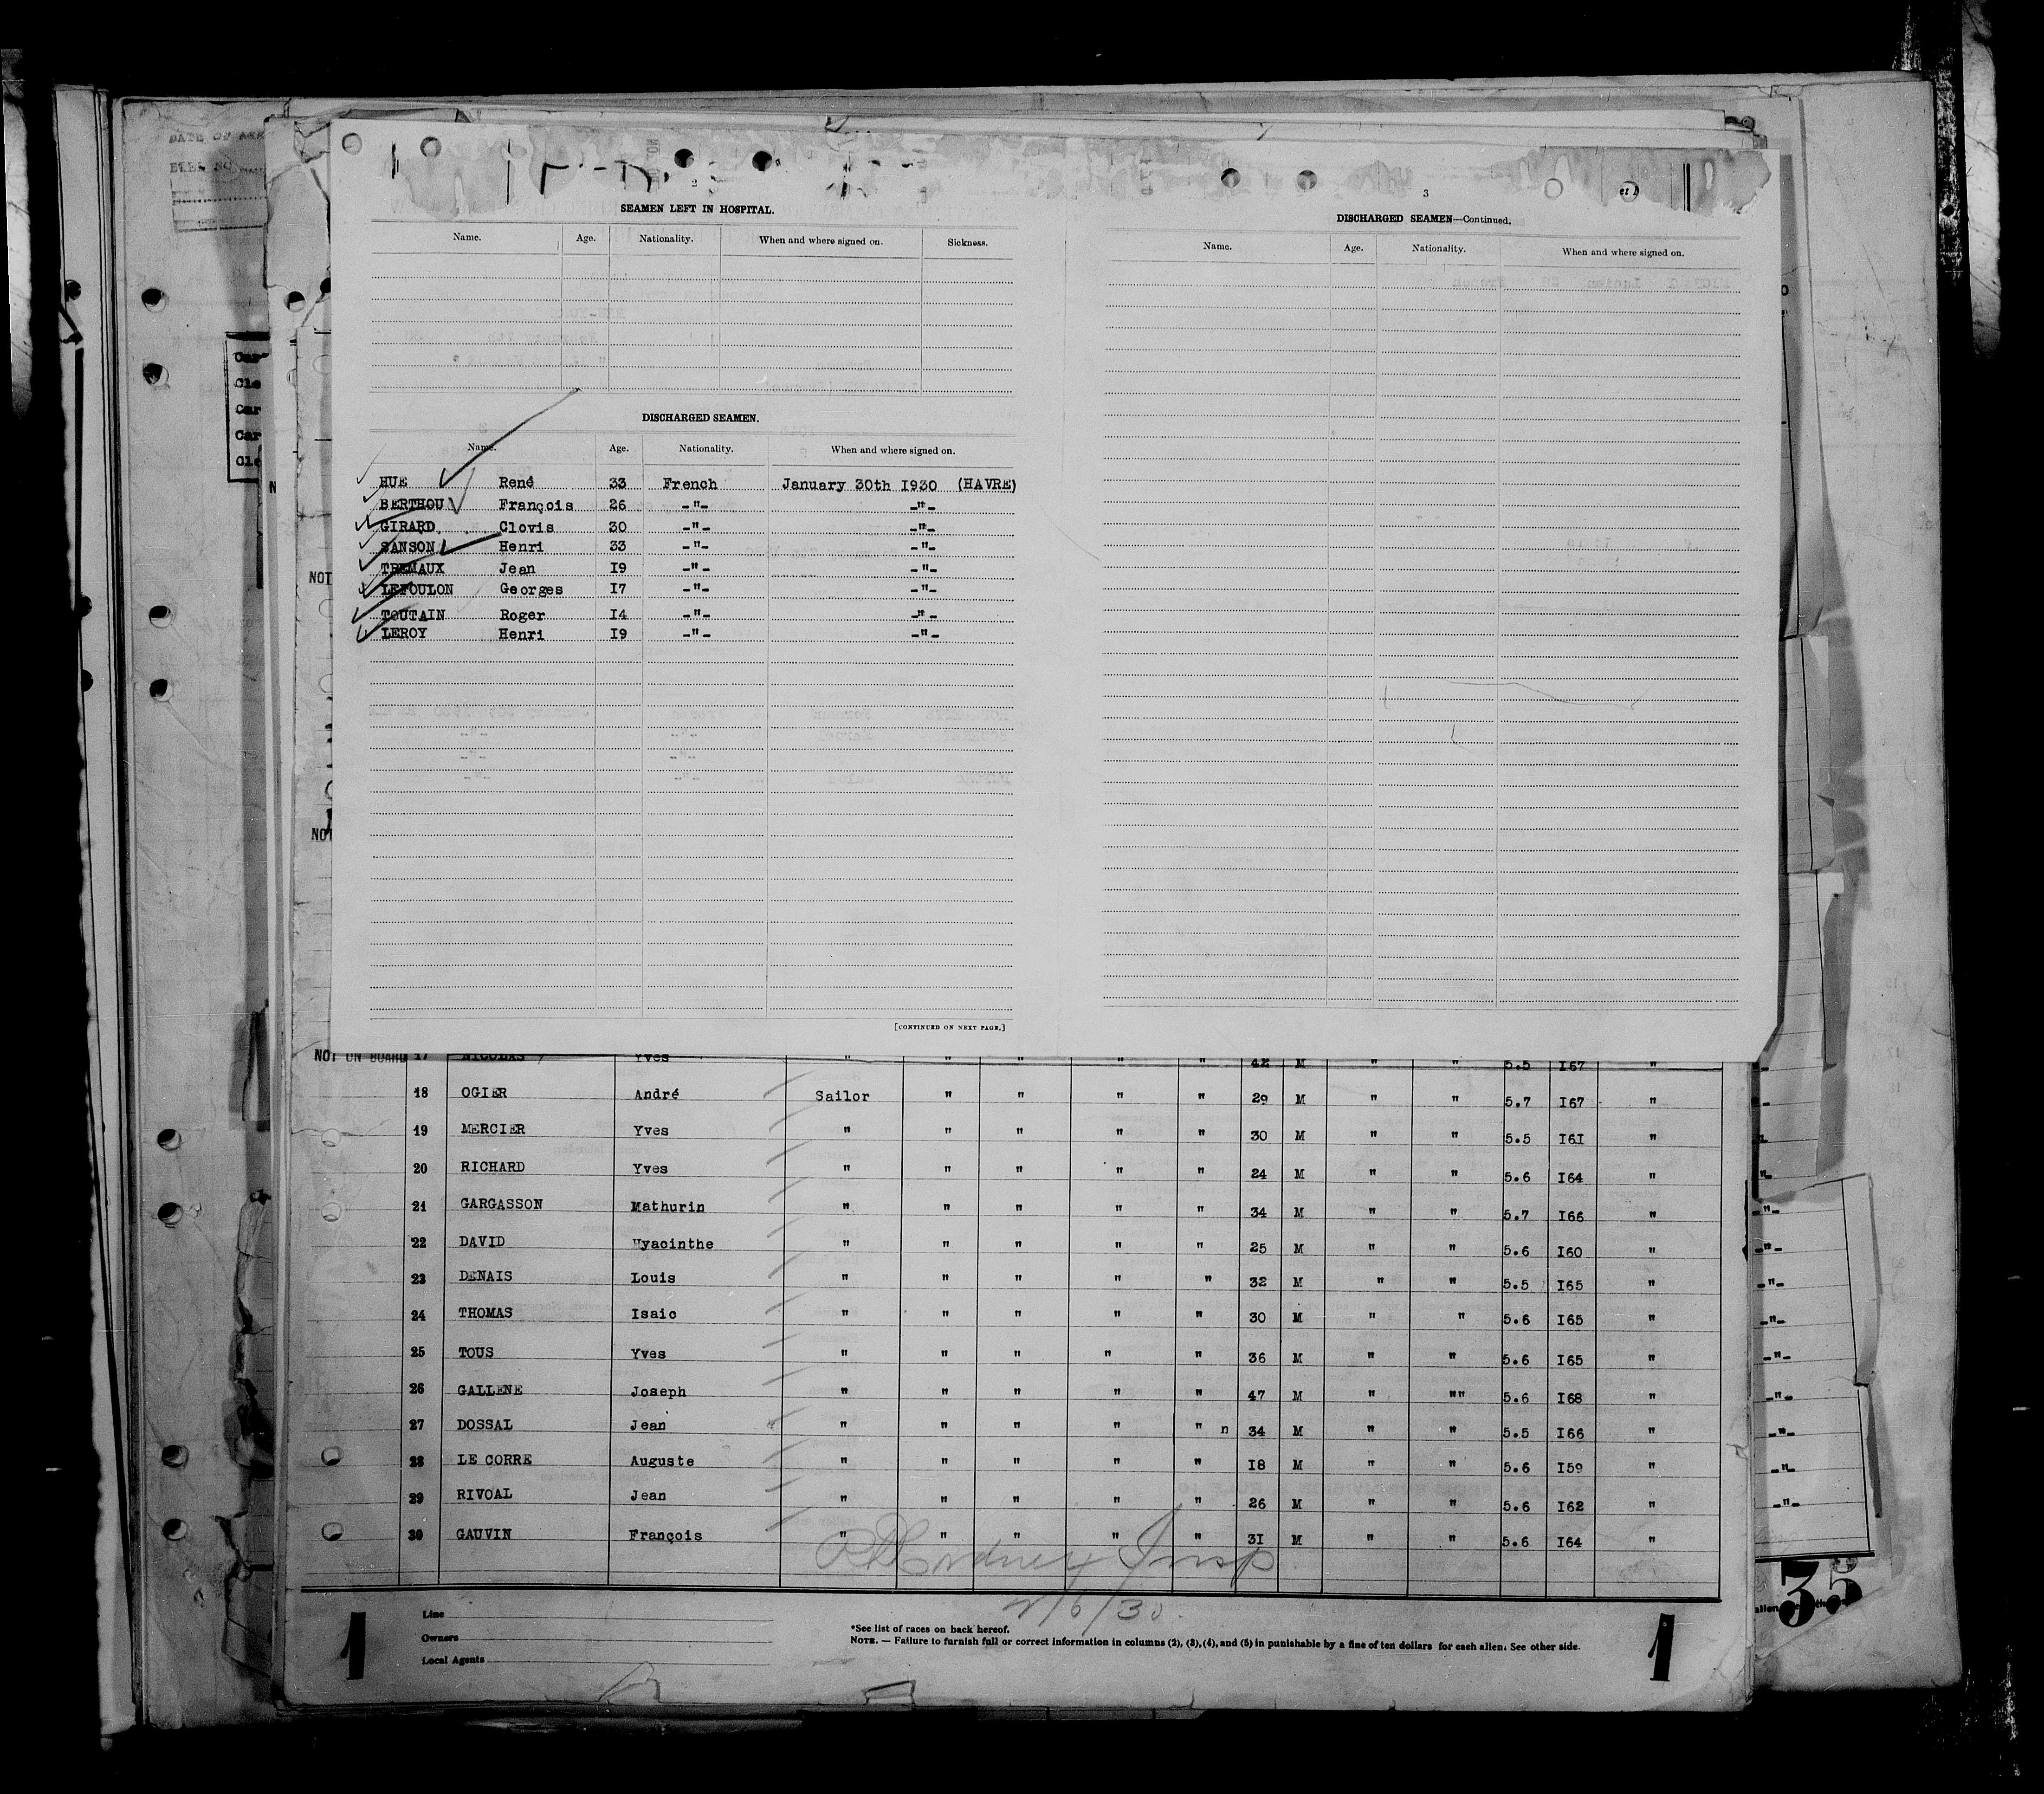 DATE OF
2
SEAMEN LEFT IN HOSPITAL.
Name. Age. Nationality. When and where signed on. Sickness.
DISCHARGED SEAMEN.
Name. Age. Nationality. When and where signed on.
HUE René 33 French January 30th I930 (HAVRE)
BERTHOU François 26 -"- -"-
GIRARD Clovis 30 -"- -"-
SANSON Henri 33 -"- -"-
TREMAUX Jean I9 -"- -"-
LEFOULON Georges I7 -"- -"-
TOUTAIN Roger I4 -"- -"-
LEROY Henri I9 -"- -"-
[CONTINUED ON NEXT PAGE.]
3
DISCHARGED SEAMEN—Continued.
Name. Age. Nationality. When and where signed on.
Car
Cle
Car
Car
Cle
NOT
NOT
NOT ON BOARD 17 NICOLAS Yves " " " " " 42 M " " 5.5 I67 "
18 OGIER André Sailor " " " " 29 M " " 5.7 I67 "
19 MERCIER Yves " " " " " 30 M " " 5.5 I6I "
20 RICHARD Yves " " " " " 24 M " " 5.6 I64 "
21 GARGASSON Mathurin " " " " " 34 M " " 5.7 I66 "
22 DAVID Hyacinthe " " " " " 25 M " " 5.6 I60 "
23 DENAIS Louis " " " " " 32 M " " 5.5 I65 "
24 THOMAS Isaic " " " " " 30 M " " 5.6 I65 "
25 TOUS Yves " " " " " 36 M " " 5.6 I65 "
26 GALLENE Joseph " " " " " 47 M " "" 5.6 I68 "
27 DOSSAL Jean " " " " " n 34 M " " 5.5 I66 "
28 LE CORRE Auguste " " " " " I8 M " " 5.6 I59 "
29 RIVOAL Jean " " " " " 26 M " " 5.6 I62 "
30 GAUVIN François " " " " " 3I M " " 5.6 I64 "
Insp
1
Line
Owners
Local Agents
*See list of races on back hereof.
NOTE. — Failure to furnish full or correct information in columns (2), (3), (4), and (5) in punishable by a fine of ten dollars for each alien. See other side.
1
35